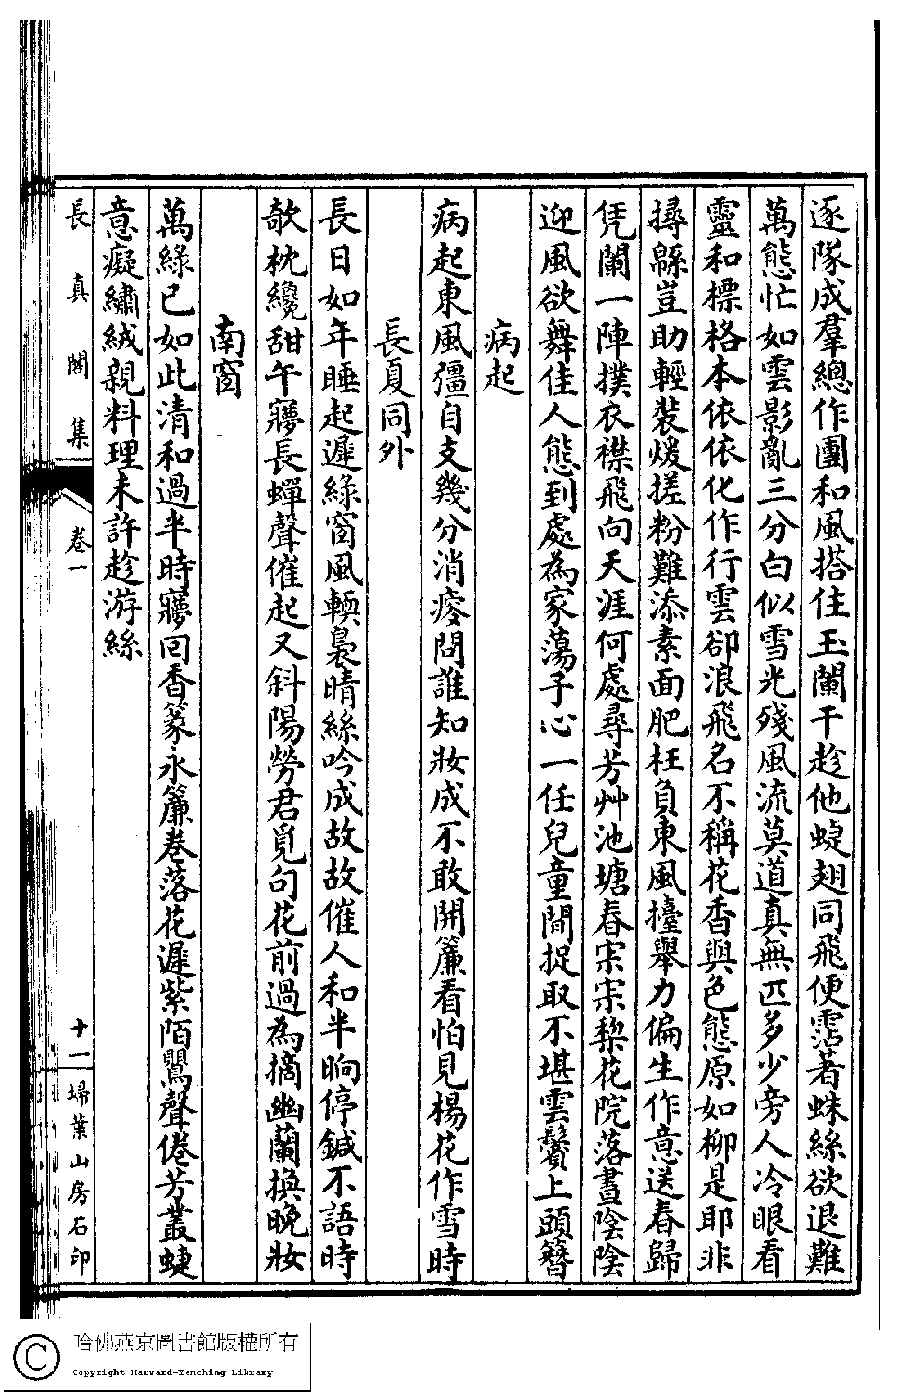 逐隊成羣總作團和風搭住玉闌干趁他蜨翅同飛便霑著蛛絲欲退難
萬態忙如雲影亂三分白似雪光殘風流莫道真無匹多少旁人冷眼看
靈和標格本依依化作行雲卻浪飛名不稱花香與色態原如柳是耶非
撏緜豈助輕裝煖搓粉難添素面肥枉負東風擡舉力偏生作意送春歸
凭闌一陣撲衣襟飛向天涯何處尋芳艸池塘春寀寀棃花院落晝陰陰
迎風欲舞佳人態到處為家蕩子心一任兒童閒捉取不堪雲鬢上頭簪
病起
病起東風彊自支幾分消瘦問誰知妝成不敢開簾看怕見楊花作雪時
長夏同外
長日如年睡起遲綠窗風輭裊晴絲吟成故故催人和半晌停鍼不語時
欹枕纔甜午寢長蟬聲催起又斜陽勞君覓句花前過為摘幽蘭換晚妝
南窗
萬綠已如此清和過半時寢回香篆永簾卷落花遲紫陌鶯聲倦芳叢蜨
意癡繡絨親料理未許趁游絲
長真閣集
卷一
十一
埽葉山房石印
哈佛燕京圖書館版權所有
Copyright Harvard-Yenching Library